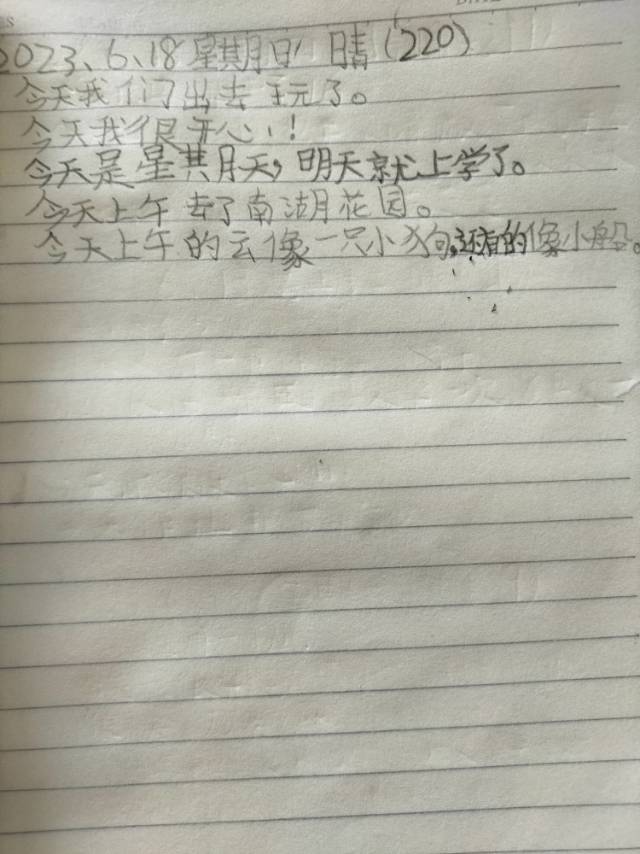 2023、6、18 星期日 晴(220)
今天我们出去玩了。
今天我很开心!
今天是星其月天,明天就上学了。
今天上午去了南湖花园。
今天上午的云像一只小狗,还有的像小船。